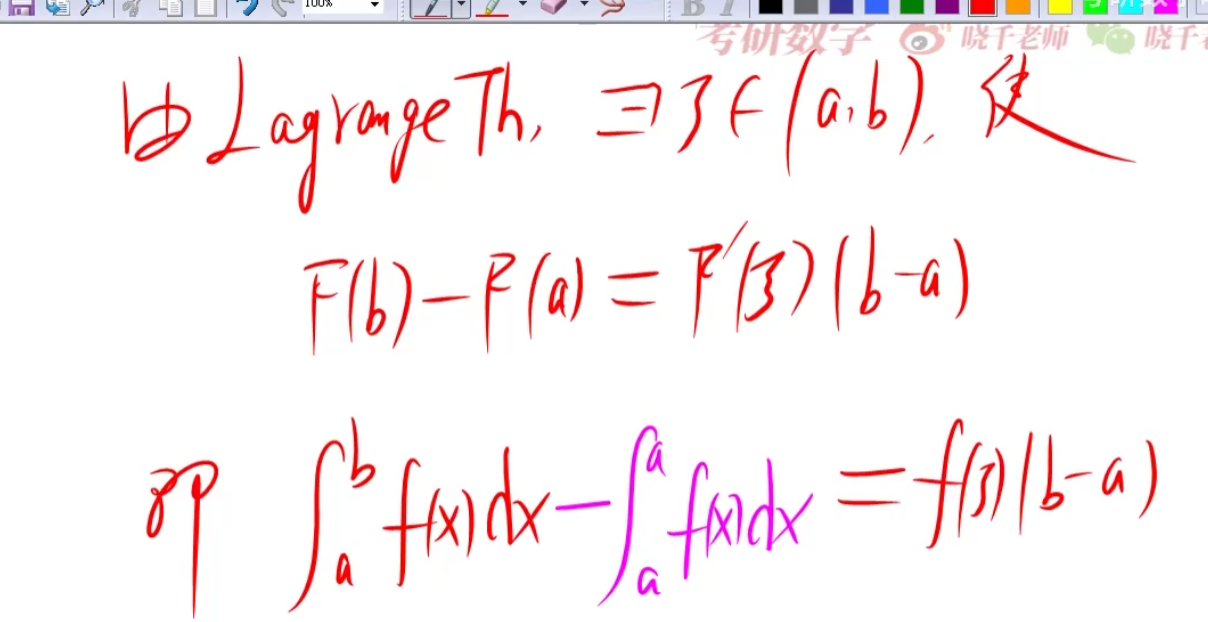 100%
考研数学 晓千老师 晓千
由 Lagrange Th, ∃ξ∈(a,b), 使
F(b)-F(a)=F'(ξ)(b-a)
即 ∫_a^b f(x)dx-∫_a^a f(x)dx=f(ξ)(b-a)